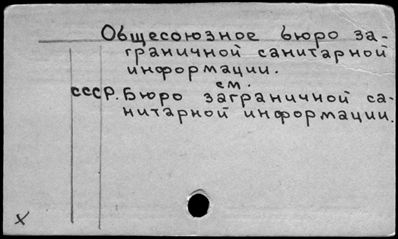 Общесоюзное бюро за-
граничной санитарной
информации.
см.
СССР. Бюро заграничной са-
нитарной информации.
х